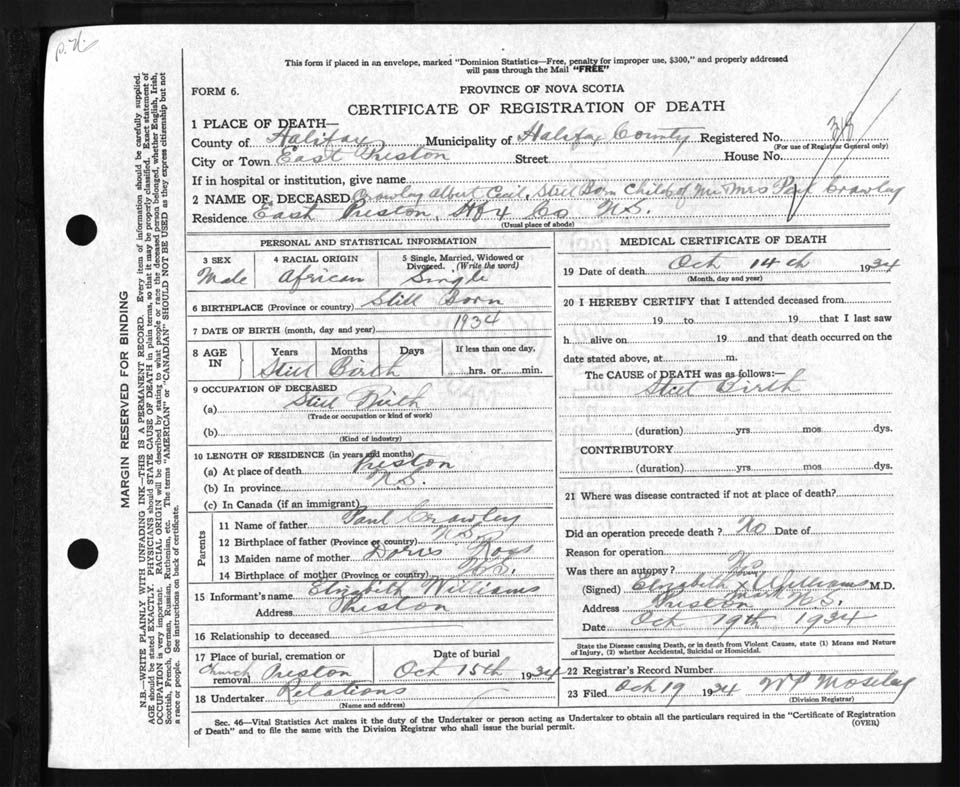 p.n.
This form if placed in an envelope, marked "Dominion Statistics—Free, penalty for improper use, $300," and properly addressed
will pass through the Mail "FREE"
FORM 6.
PROVINCE OF NOVA SCOTIA
CERTIFICATE OF REGISTRATION OF DEATH
318
1 PLACE OF DEATH—
County of Halifax Municipality of Halifax County Registered No.
(For use of Registrar General only)
City or Town East Preston Street House No.
If in hospital or institution, give name
2 NAME OF DECEASED Crawley Albert Cecil, Still Born Child of Mr & Mrs Paul Crawley
Residence East Preston, Hfx Co N.S.
(Usual place of abode)
PERSONAL AND STATISTICAL INFORMATION
3 SEX 4 RACIAL ORIGIN 5 Single, Married, Widowed or
Divorced. (Write the word)
Male African Single
6 BIRTHPLACE (Province or country) Still Born
7 DATE OF BIRTH (month, day and year) 1934
8 AGE IN Years Months Days If less than one day,
Still Birth hrs. or min.
9 OCCUPATION OF DECEASED
(a) Still Birth
(Trade or occupation or kind of work)
(b)
(Kind of industry)
10 LENGTH OF RESIDENCE (in years and months)
(a) At place of death Preston
(b) In province N.S.
(c) In Canada (if an immigrant)
Parents
11 Name of father Paul Crawley
12 Birthplace of father (Province or country) N.S.
13 Maiden name of mother Doris Ross
14 Birthplace of mother (Province or country) N.S.
15 Informant's name Elizabeth Williams
Address Preston
16 Relationship to deceased
17 Place of burial, cremation or removal Date of burial
Church Preston Oct 15th 1934
18 Undertaker Relations
(Name and address)
MEDICAL CERTIFICATE OF DEATH
19 Date of death Oct 14th 1934
(Month, day and year)
20 I HEREBY CERTIFY that I attended deceased from
19 to 19 that I last saw
h alive on 19 and that death occurred on the
date stated above, at m.
The CAUSE OF DEATH was as follows:—
Still Birth
(duration) yrs. mos. dys.
CONTRIBUTORY
(duration) yrs. mos. dys.
21 Where was disease contracted if not at place of death?
Did an operation precede death? No Date of
Reason for operation
Was there an autopsy?
her
(Signed) Elizabeth x Williams M.D.
mark
Address Preston N.S.
Date Oct 19th 1934
State the Disease causing Death, or in death from Violent Causes, state (1) Means and Nature
of Injury, (2) whether Accidental, Suicidal or Homicidal.
22 Registrar's Record Number
23 Filed Oct 19 1934 W P Moseley
(Division Registrar)
Sec. 46—Vital Statistics Act makes it the duty of the Undertaker or person acting as Undertaker to obtain all the particulars required in the "Certificate of Registration
of Death" and to file the same with the Division Registrar who shall issue the burial permit.
(OVER)
MARGIN RESERVED FOR BINDING
N.B.—WRITE PLAINLY WITH UNFADING INK—THIS IS A PERMANENT RECORD. Every item of information should be carefully supplied.
AGE should be stated EXACTLY. PHYSICIANS should STATE CAUSE OF DEATH in plain terms, so that it may be properly classified. Exact statement of
OCCUPATION is very important. RACIAL ORIGIN will be described by stating to what people or race the deceased person belonged, whether English, Irish,
Scottish, French, German, Russian, Ruthenian, etc. The terms "AMERICAN" or "CANADIAN" SHOULD NOT BE USED as they express citizenship but not
a race or people. See instructions on back of certificate.